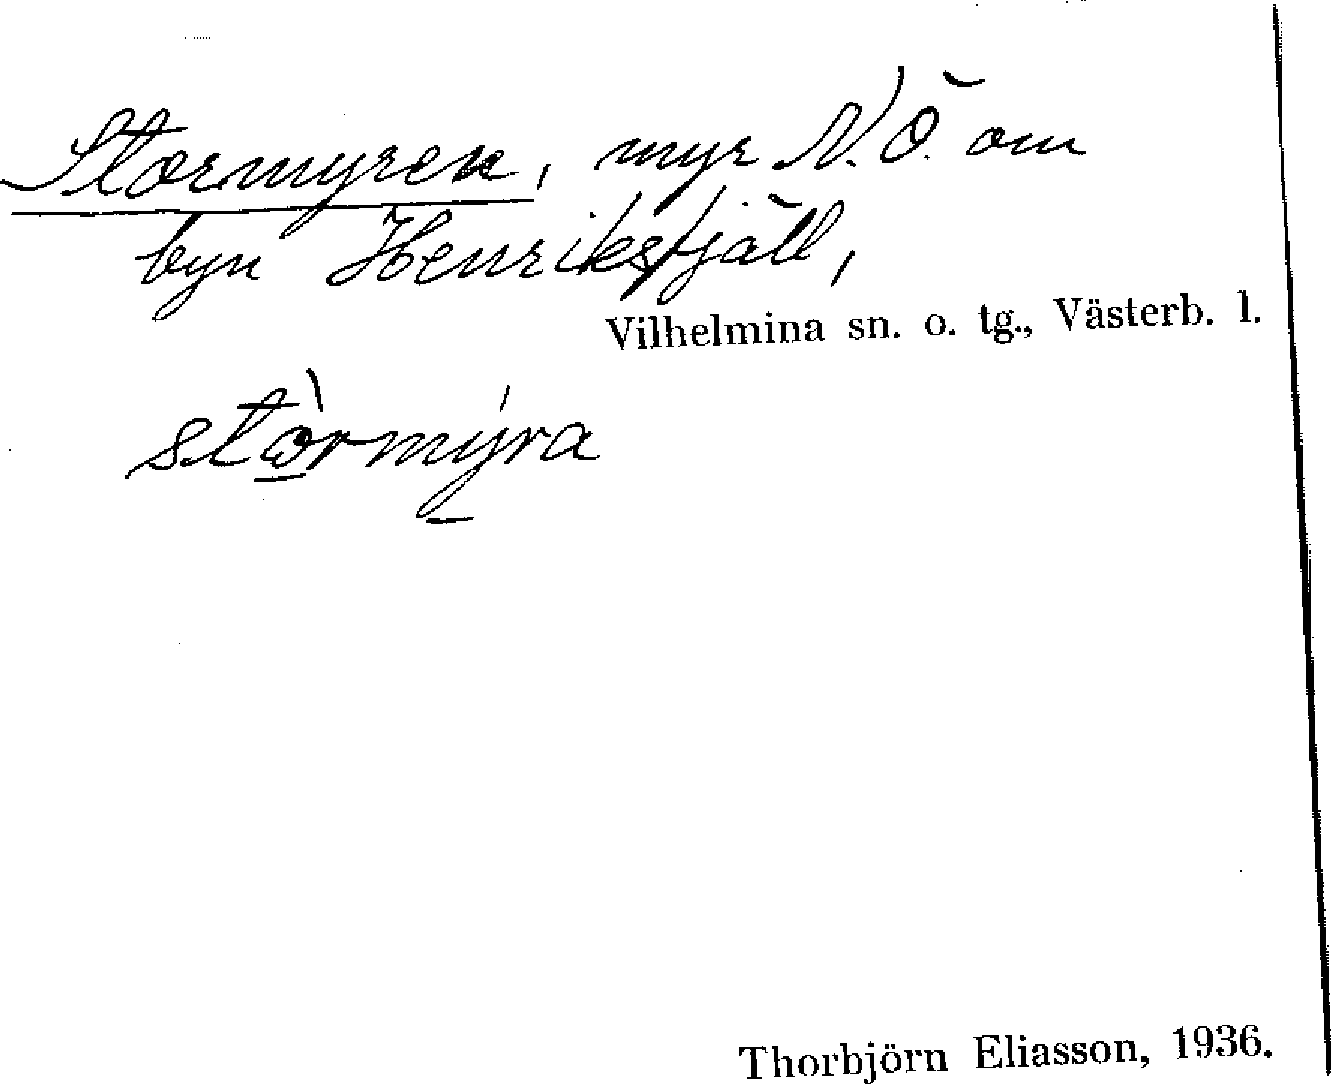 Stormyren, myr N.Ö. om
byn Henriksfjäll,
Vilhelmina sn. o. tg., Västerb. l.
stòrmýra
Thorbjörn Eliasson, 1936.